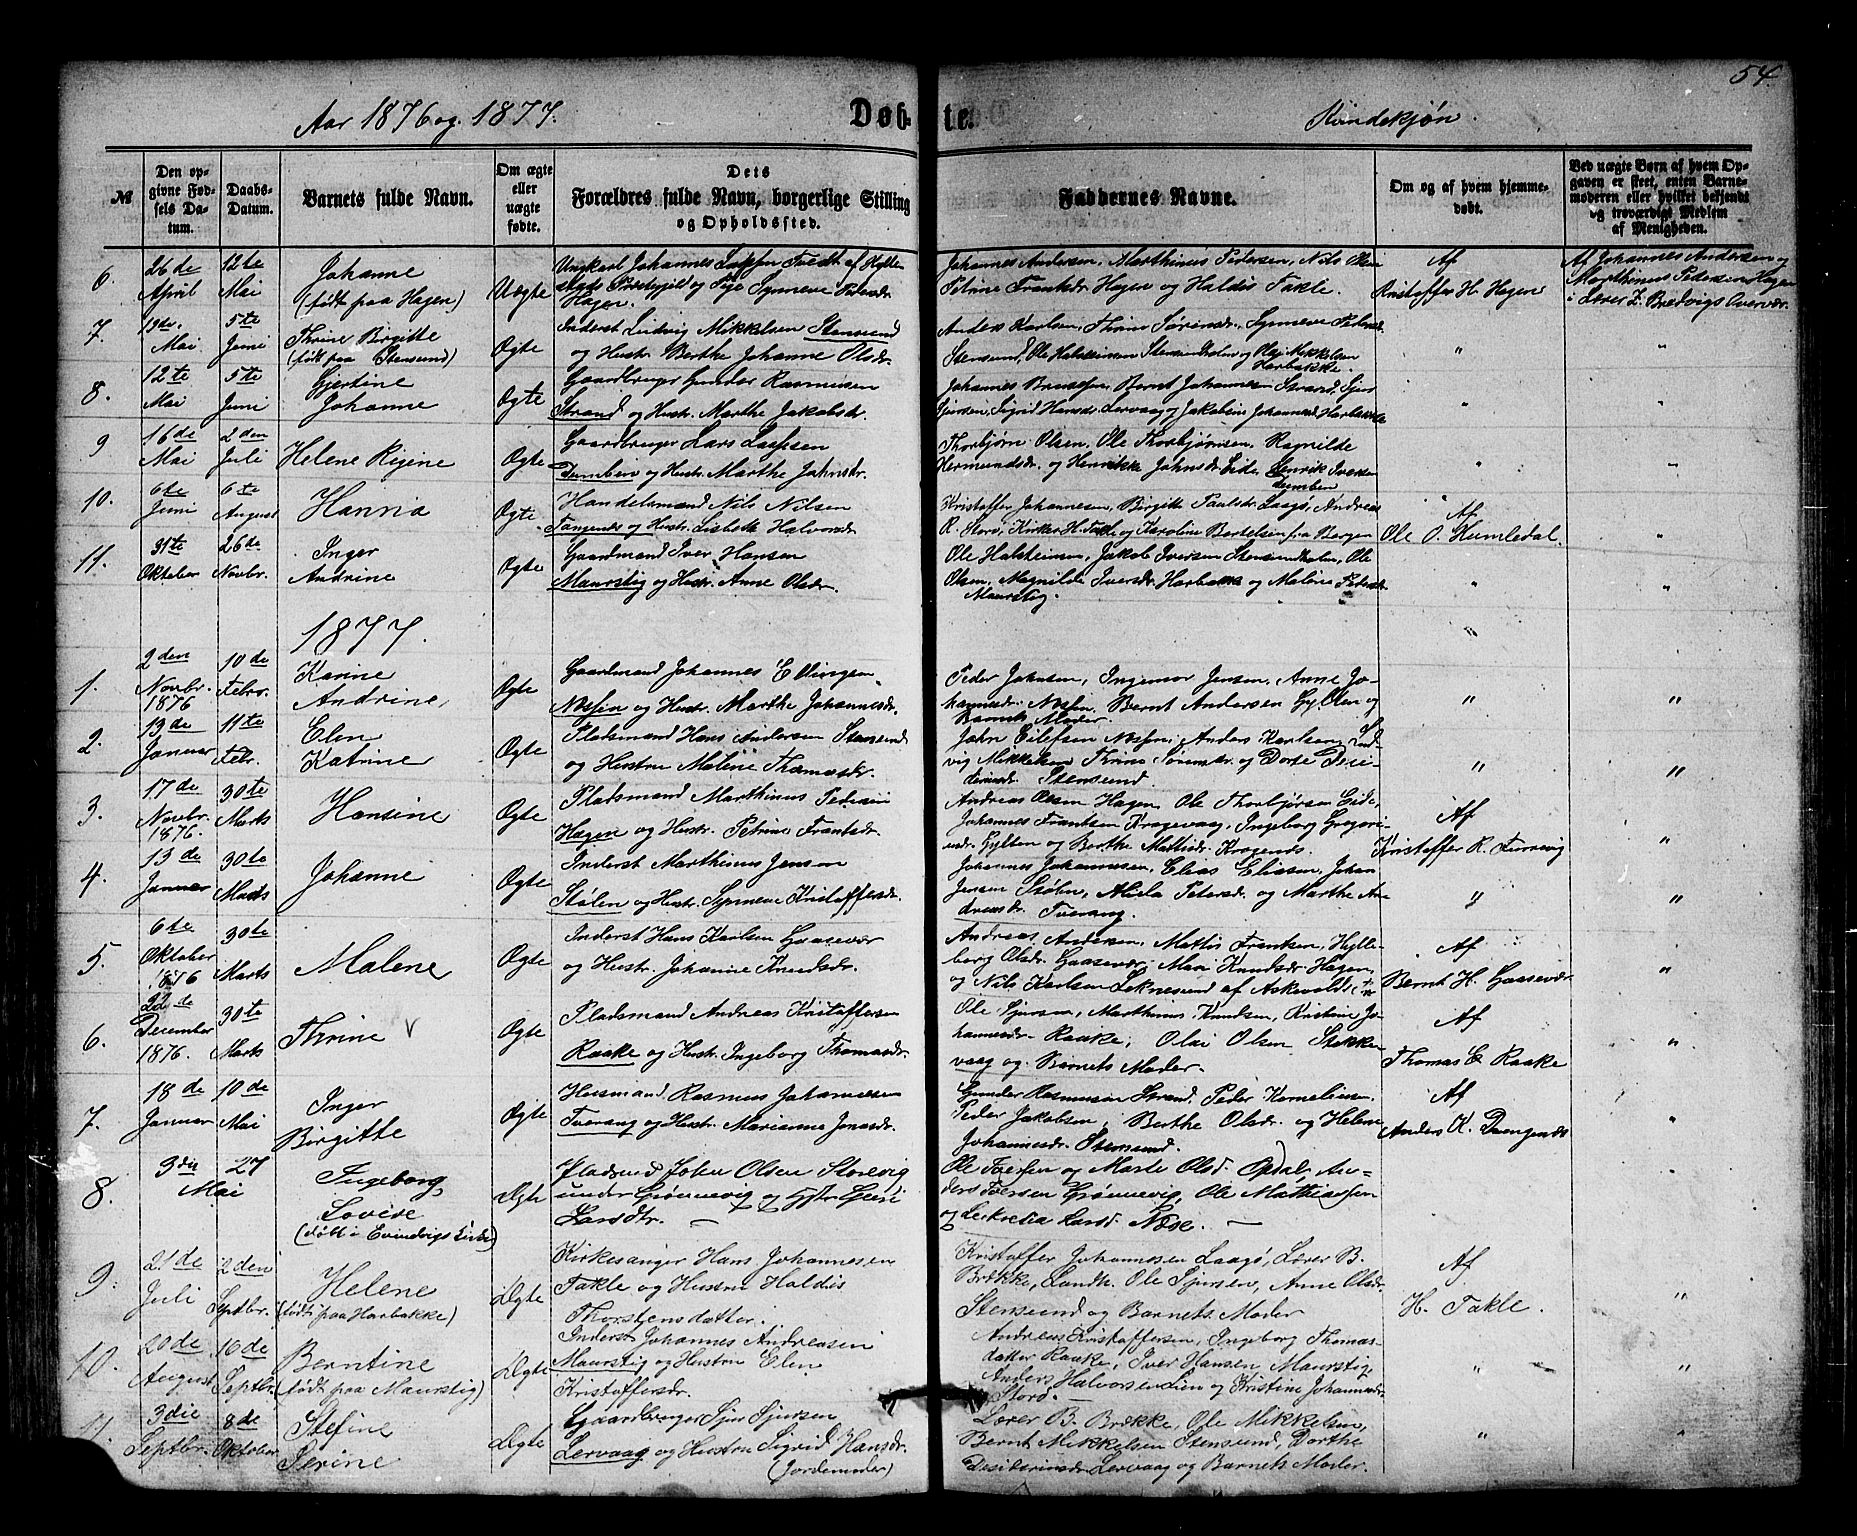 54.
Aar 1876 og 1877.
Døb- te.
Kvindekjøn.
№
Den opgivne Fødsels Datum.
Daabs-Datum.
Barnets fulde Navn.
Om ægte eller uægte fødte.
Dets Forældres fulde Navn, borgerlige Stilling og Opholdssted.
Faddernes Navne.
Om og af hvem hjemmedøbt.
Ved uægte Børn af hvem Opgaven er skeet, enten Barnemoderen eller hvilket bekjendt og troværdigt Medlem af Menigheden.
6. 26de April 12te Mai Johanne (født paa Hagen) Uægte
Ungkarl Johannes Tvedt af Hyllestads Præstegjeld og Pige Synneve Hagen.
Johannes Andersen, Marthinus Pedersen, Nils Olsen
Petrine Frantsdr. Hagen og Haldis Takle.
Af Kristoffer H. Hagen
Af Johannes Andersen og
Marthinus Pedersen Hagen
i Lærer Bredvigs
7. 13de Mai 5te Juni Thrine Birgitte (født paa Stensund) Ægte
Inderst Ludvig Mikkelsen Stensund
og Hustr. Berthe Johanne Olsdr.
Anders Karlsen, Thrine Sørensdr., Synneve
Stensund, Ole Halsteinsen Stensundholm og Mikkelsen
Harbakke.
" "
8. 12te Mai 5te Juni Gjertine Johanne Ægte
Gaardbruger Gunder Rasmusen
Strand og Hustr. Marthe Jakobsdr.
Johannes Bernt Johannesen Strand, Sjur
Sjursen, Sigrid Hansdr. Lervaag og Jakobine Johannesdr. Harbakke
" "
9 16de Mai 2den Juli Helene Regine Ægte
Gaardbruger Lars
og Hustr. Marthe Johnsdr.
Thorbjørn Olsen, Ole Thorbjørnsen, Ragnilde
Hermundsdr. og Henrikke Johnsdr. Eide, Henrik Iversen
" "
10. 6te Juni 6te August Hanna Ægte
Handelsmand Nils Nilsen
Tangenes og Hustr. Lisbeth Halvorsdr
Kristoffer Johannesen, Birgitte Paulsdr. Laagø, Andreas
R. Storø, Kirkes. H. Takle og Karoline Bertelsen fra Bergen
Af Ole O. Humledal.
"
11. 31te Oktober 26de Novbr. Inger Andrine Ægte
Gaardmand Iver Hansen
Maurstig og Hustr. Anne Olsdr.
Ole Halsteinsen, Jakob Iversen Stensundholm, Ole
Olsen, Magnilde Iversdr. Harbakke og Malene
Maurstig.
" "
1877.
"
1. 2den Novbr. 1876 10de Febr. Karine Andrine Ægte
Gaardmand Johannes Ellingsen
Nessen og Hustr. Marthe Johannesdr.
Peder Johnsen, Ingemor Jensen, Anne Jo-
hannesdr. Bernt Andersen Gylten og
Barnets Moder.
" "
2. 13de Januar 11te Febr. Elen Katrine Ægte
Pladsmand Hans Andersen Stensund
og Hustru Malene Thomasdr.
John Eilefsen Anders Karlsen, Lud-
vig Mikkelsen Thrine og Dorte
Stensund.
" "
3. 17de Novbr. 1876. 30te Marts Hansine Ægte
Pladsmand Marthinus Pedersen
Hagen og Hustr. Petrine Frantsdr.
Andreas Olsen Hagen, Ole Thorbjørnsen Eide,
Johannes Frantsen Krogevaag, Ingeborg Gregori-
usdr. Gylten og Berthe
Af Kristoffer R. Furevig
"
4. 13de Januar 30te Marts Johanne Ægte
Inderst Marthinus Jensen
Stølen og Hustr. Synneve Kristoffersdr.
Johannes Johannesen, Elias Eliasen, Johan
Jensen Stølen, Petersdr. og Marthe An-
dreasdr. Tverang.
" "
5. 6te Oktober 1876 30te Marts Malene Ægte
Inderst Hans Karlsen Gaasevær
og Hustr. Johanne Knudsdr.
Andreas Andersen, Mattis Frantsen, Hylle-
berg Olsdr. Gaasevær, Mari Knudsdr. Hagen,
og Nils Karlsen Leknesund af Askevold
Af Bernt H. Gaasevær
"
6. 22de December 1876. 30te Marts Thrine Ægte
Pladsmand Andreas Kristoffersen
Raake og Hustr. Ingeborg Thomasdr.
Ole Sjursen, Marthinus Knudsen, Kristine Jo-
hannesdr. Raake, Olai Olsen Stokke-
vaag og Barnets Moder.
Af Thomas E Raake
"
7. 18de Januar 10de Mai Inger Birgitte Ægte
Husmand Rasmus Johannesen
Tverang og Hustr. Marianne Jonasdr.
Gunder Rasmusen Strand, Peder Kornelius.
Peder Jakobsen, Berthe Olsdr. og Helene
Johannesdr. Stensund.
Af Anders K.
"
8. 3die Mai 27 Ingeborg Lovise (døbt i Evindvigs Kirke) Ægte
Pladsmd John Olsen Storevig
under Grønnevig og Hstr Guri
Larsdtr. —
Ole Iversen og Marte Olsd. Opdal, An-
ders Iversen Grønnevig, Ole Mathiassen
og Lukretia Larsd. Næse. —
"
9. 21de Juli 2den Septbr. Helene (født paa Harbakke) Ægte
Kirkesanger Hans Johannesen
Takle og Hustru Haldis
Thorstensdatter.
Kristoffer Johannesen Laagø, Lærer B.
Brække, Landh. Ole Sjursen, Anne Olsdr.
Stensund og Barnets Moder
Af H. Takle.
"
10. 20de August 16de Septbr. Berntine (født paa Maurstig) Ægte
Inderst Johannes Andreasen
Maurstig og Hustru Elen
Kristoffersdr.
Andreas Kristoffersen, Ingeborg Thomas-
datter Raake, Iver Hansen, Maurstig,
Anders Halvorsen Lien og Kristine Johannesdr
Storø.
" "
11. 3die Septbr. 8de Oktober Stefine Serine Ægte
Gaardbruger Sjur Sjursen
Lervaag og Hustru Sigrid Hansdr.
(Jordemoder)
Lærer B. Brække, Ole Mikkelsen,
Bernt Mikkelsen Stensund, Dorthe
Desideriusdr. Lervaag og Barnets Moder.
" "